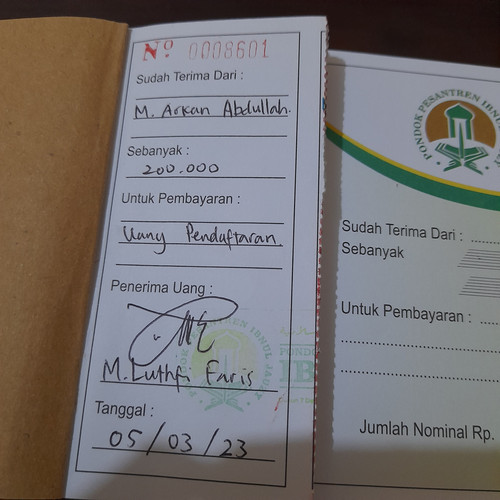 Nº 0008601
Sudah Terima Dari :
M. Arkan Abdullah.
Sebanyak :
200.000
Untuk Pembayaran :
Uang Pendaftaran
Penerima Uang :
M. Luthfi Faris
Tanggal :
05/03/23
PONDOK PESANTREN IBNUL
Sudah Terima Dari :
Sebanyak
Untuk Pembayaran :
Jumlah Nominal Rp.